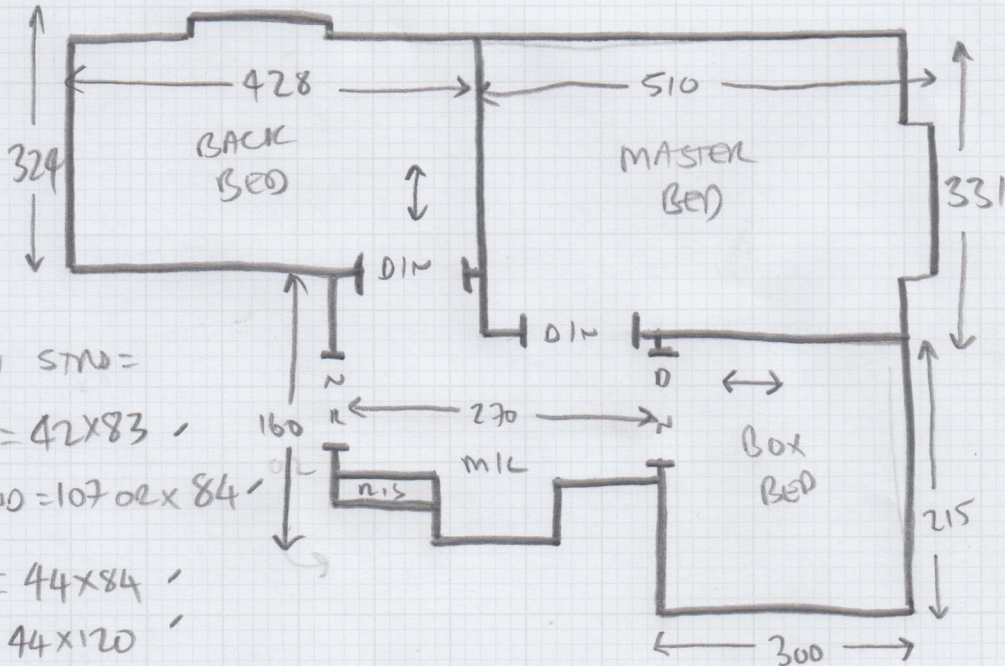 428
510
324
BACK
BED
MASTER
BED
331
D/N
D/N
STND=
= 42X83
160
N
R
270
D
N
M/L
BOX
BED
=10702X84
N.S
215
= 44X84
44X120
300